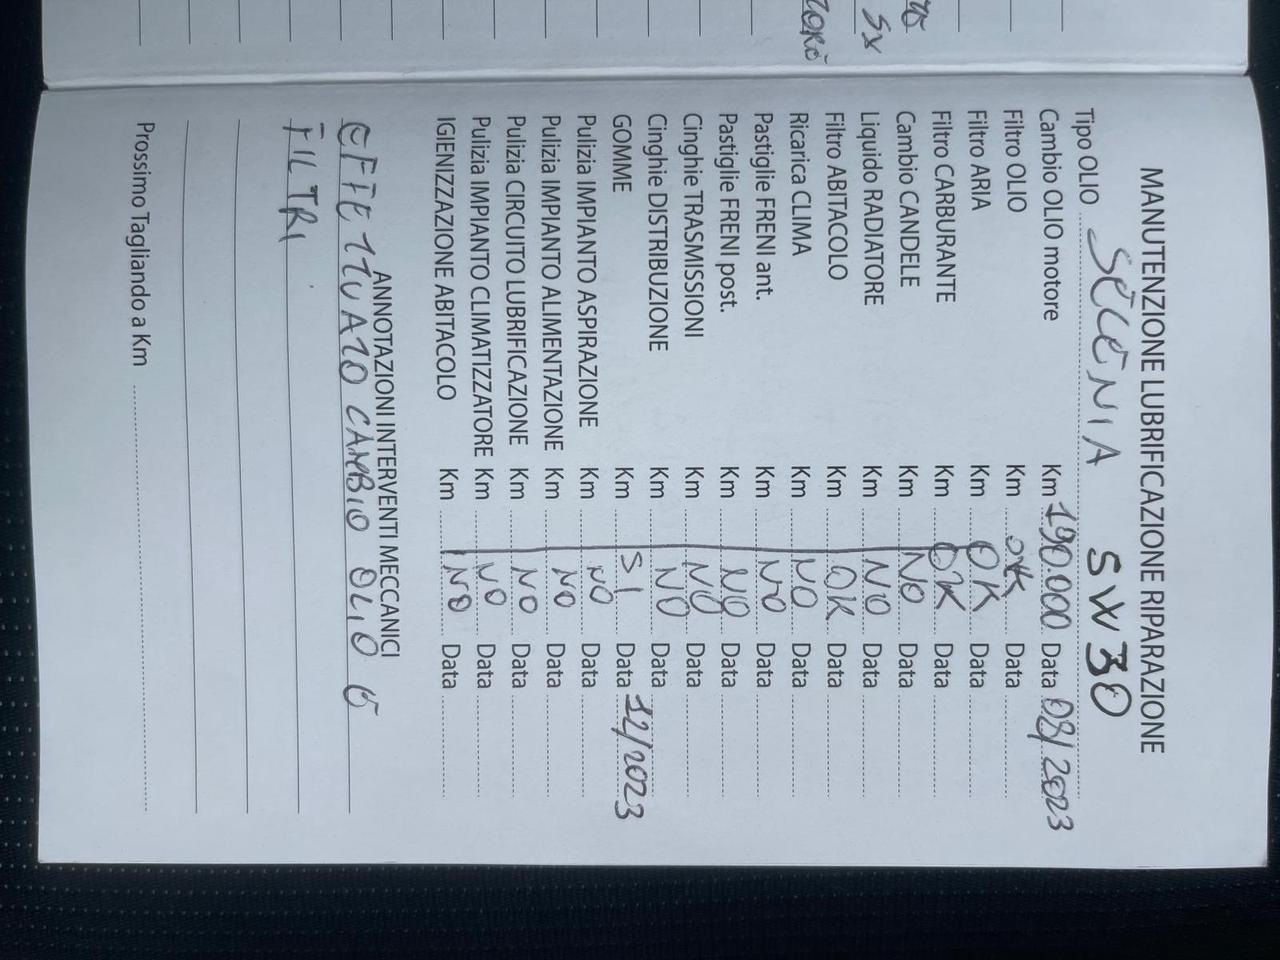 MANUTENZIONE LUBRIFICAZIONE RIPARAZIONE
Tipo OLIO SELENIA 5W30
Cambio OLIO motore Km 190.000 Data 08/2023
Filtro OLIO Km OK Data
Filtro ARIA Km OK Data
Filtro CARBURANTE Km OK Data
Cambio CANDELE Km NO Data
Liquido RADIATORE Km NO Data
Filtro ABITACOLO Km OK Data
Ricarica CLIMA Km NO Data
Pastiglie FRENI ant. Km NO Data
Pastiglie FRENI post. Km NO Data
Cinghie TRASMISSIONI Km NO Data
Cinghie DISTRIBUZIONE Km NO Data
GOMME Km SI Data 12/2023
Pulizia IMPIANTO ASPIRAZIONE Km NO Data
Pulizia IMPIANTO ALIMENTAZIONE Km NO Data
Pulizia CIRCUITO LUBRIFICAZIONE Km NO Data
Pulizia IMPIANTO CLIMATIZZATORE Km NO Data
IGIENIZZAZIONE ABITACOLO Km NO Data
ANNOTAZIONI INTERVENTI MECCANICI
EFFETTUATO CAMBIO OLIO E
FILTRI
Prossimo Tagliando a Km
SX